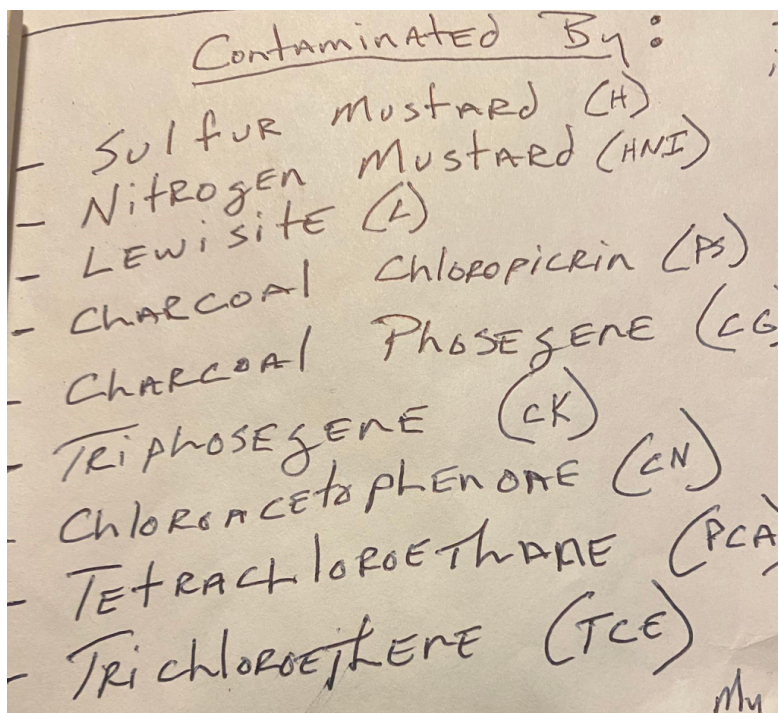 Contaminated By:
- Sulfur Mustard (H)
- Nitrogen Mustard (HNI)
- Lewisite (L)
- Charcoal Chloropicrin (PS)
- Charcoal Phosegene (CG
- Triphosegene (CK)
- Chloroacetophenone (CN)
- Tetrachloroethane (PCA)
- Trichloroethene (TCE)
My